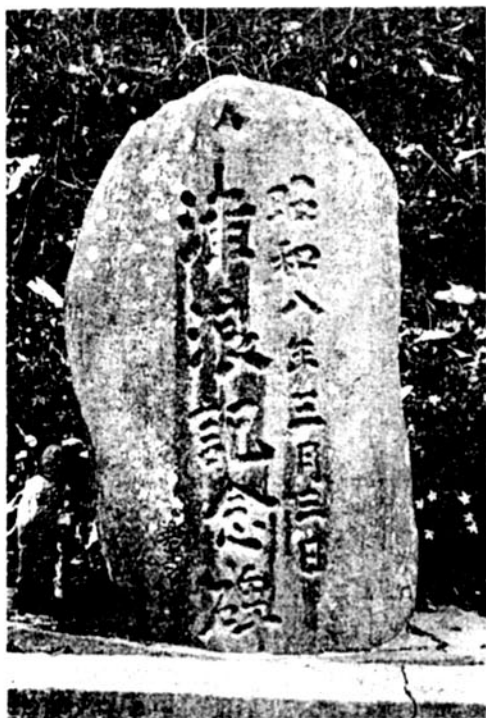 昭和八年三月三日
津浪記念碑